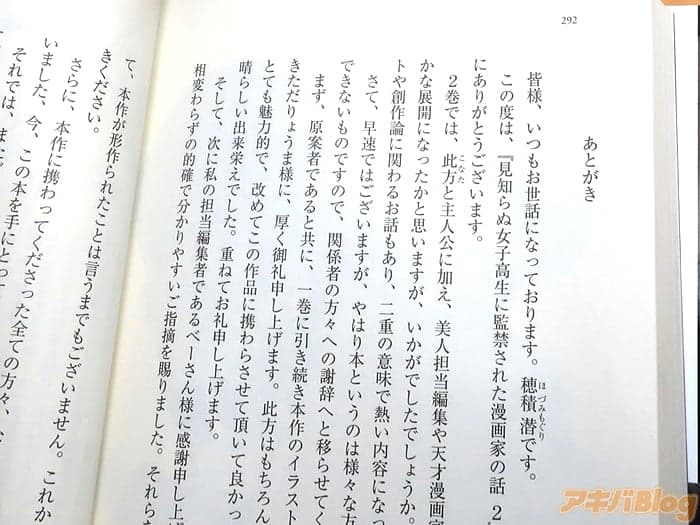 292
あとがき
皆様、いつもお世話になっております。穂積潜です。
ほづみもぐり
この度は、『見知らぬ女子高生に監禁された漫画家の話 2
にありがとうございます。
2巻では、此方と主人公に加え、美人担当編集や天才漫画家
こなた
かな展開になったかと思いますが、いかがでしたでしょうか。
トや創作論に関わるお話もあり、二重の意味で熱い内容にな
さて、早速ではございますが、やはり本というのは様々な方
できないものですので、関係者の方々への謝辞へと移らせてく
まず、原案者であると共に、一巻に引き続き本作のイラスト
きただりょうま様に、厚く御礼申し上げます。此方はもちろん
とても魅力的で、改めてこの作品に携わらせて頂いて良かっ
晴らしい出来栄えでした。重ねてお礼申し上げます。
そして、次に私の担当編集者であるべーさん様に感謝申し上げ
相変わらずの的確で分かりやすいご指摘を賜りました。それら
て、本作が形作られたことは言うまでもございません。これか
きください。
さらに、本作に携わってくださった全ての方々、
いました、今、この本を手にとっ
それでは、また
アキバBlog